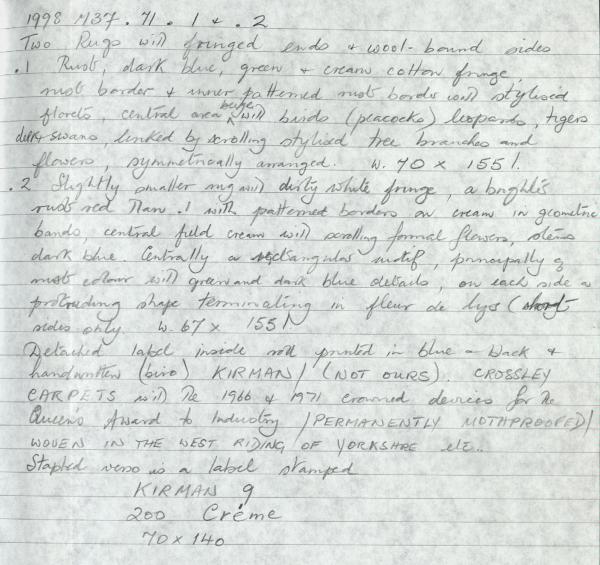 1998 M37. 71. 1 & .2
Two Rugs with fringed ends & wool-bound sides
.1 Rust, dark blue, green & cream cotton fringe,
rust border & inner patterned rust border with stylised
florets, central area beige with birds (peacocks) leopards, tigers
swans, linked by scrolling stylised tree branches and
flowers, symmetrically arranged. W. 70 x 155 l.
.2 Slightly smaller rug with dirty white fringe, a brighter
rust red than .1 with patterned borders on cream in geometric
bands, central field cream with scrolling formal flowers, stems
dark blue. Centrally a rectangular motif, principally of
rust colour with green and dark blue details, on each side a
protruding shape terminating in fleur de lys (short
sides only. W. 67 x 155 l
Detached label inside roll printed in blue & black &
handwritten (biro) KIRMAN / (NOT OURS). CROSSLEY
CARPETS with the 1966 & 1971 crowned devices for the
Queen's Award to Industry / PERMANENTLY MOTHPROOFED /
WOVEN IN THE WEST RIDING OF YORKSHIRE etc..
Stapled verso is a label stamped
KIRMAN 9
200 Crème
70 x 140